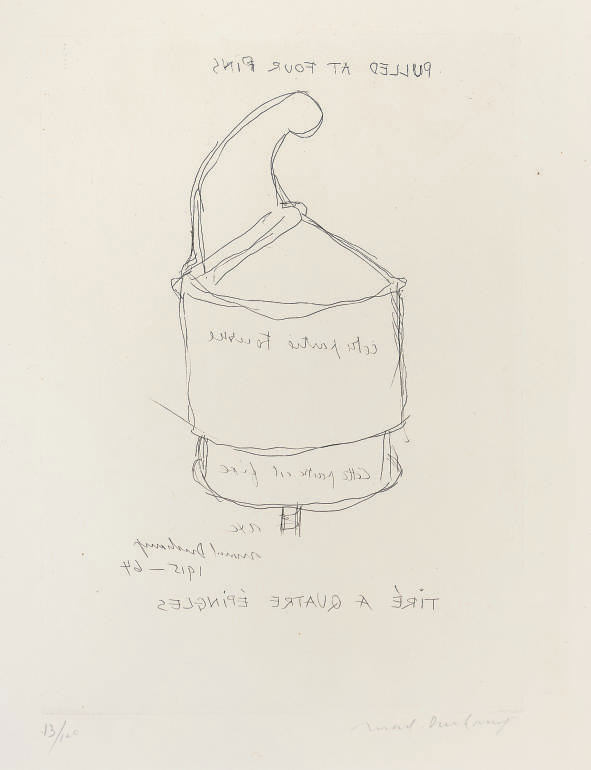 PULLED AT FOUR PINS
cette partie tourne
cette partie est fixe
axe
Marcel Duchamp
1915 – 64
TIRÉ A QUATRE ÉPINGLES
13/100 Marcel Duchamp